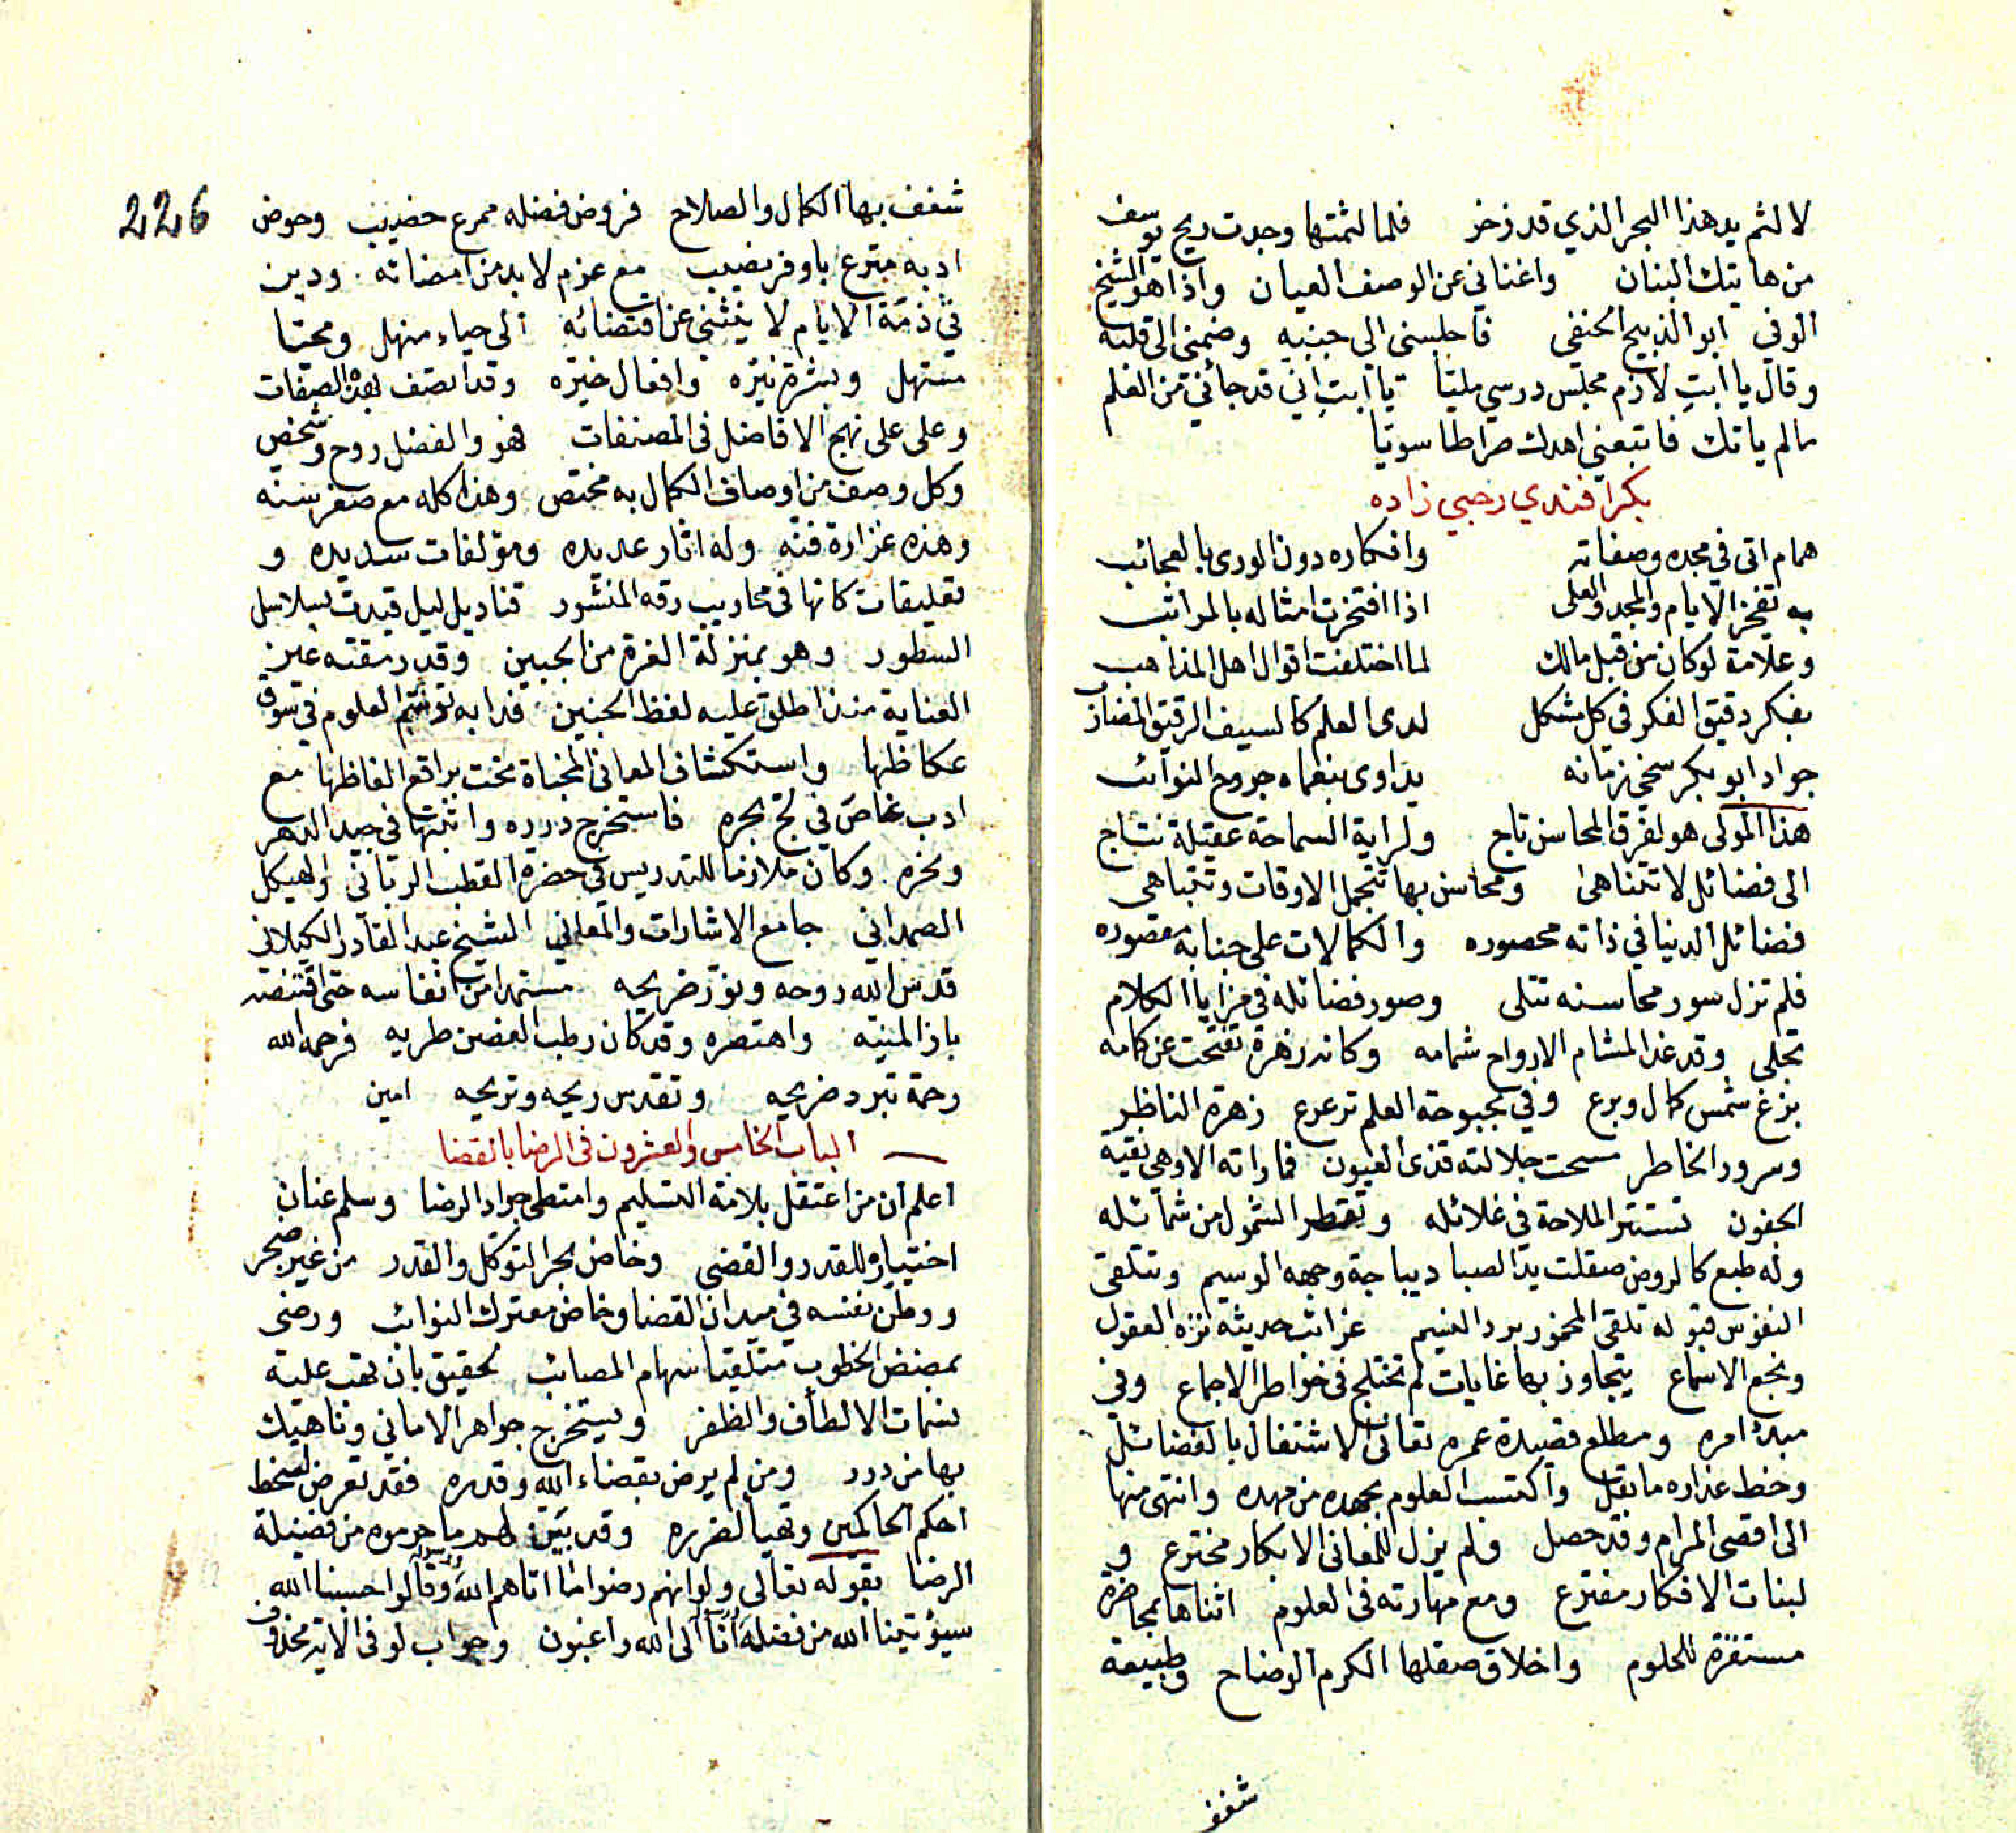 لا لثم يد هذا البحر الذي قد زخر فلما لثمتها وجدت ريح يوسف
من هاتيك البنان واغناني عن الوصف العيان واذا هو الشيخ
الوفي ابو الذبيح الحنفي فاجلسني الى جنبيه وضمني الى قلبه
وقال يا ابت لازم مجلس درسي مليا يا ابت اني قد جائني من العلم
ما لم ياتك فاتبعني اهدك صراطا سويا
بكر افندي رحبي زاده
همام اتى في مجده وصفاته وافكاره دون الورى بالعجائب
به تفخر الايام والمجد والعلى اذا افتخرت امثاله بالمراتب
وعلامة لو كان من قبل مالك لما اختلفت اقوال اهل المذاهب
بفكر دقيق الفكر في كل مشكل لدى العلم كالسيف الرقيق المضارب
جواد ابو بكر سخي زمانه يداوى بنعماه جروح النوائب
هذا المولى هو لفرق المحاسن تاج ولراية السماحة عقيلة نتاج
الى فضائل لا تتناهى ومحاسن بها تتجمل الاوقات وتتباهى
فضائل الدنيا في ذاته محصوره والكمالات على جنابه مقصوره
فلم تزل سور محاسنه تتلى وصور فضائله في مزايا الكلام
تجلى وقد غدا لمشام الارواح شمامه وكانه زهرة تفتحت عن كمامه
بزغ شمس كمال وبرع وفي بحبوحة العلم ترعرع زهرة الناظر
وسرور الخاطر مسحت جلالته قذى العيون فما راته الا وهي نقية
الجفون تستتر الملاحة في غلائله وتقطر الشمول من شمائله
وله طبع كالروض صقلت يد الصبا ديباجة وجهه الوسيم وتتلقى
النفوس قبوله تلقى المخمور برد النسيم غرائب حديثه نزه العقول
ونجع الاسماع يتجاوز بها غايات لم تختلج في خواطر الاجماع وفي
مبدء امره ومطلع قصيدة عمره تعانى الاشتغال بالفضائل
وخط عذاره ما بقل واكتسب العلوم بجهده من مهده وانتهى منها
الى اقصى المرام وقد حصل ولم يزل للمعاني الابكار مخترع و
لبنات الافكار مفترع ومع مهارته في العلوم اثناها بمحاضرة
مستفزة للحلوم واخلاق صقلها الكرم الوضاح وطبيعة
شغف
226
شغف بها الكمال والصلاح فروض فضله ممرع خصيب وحوض
ادبه مترع باوفر نصيب مع عزم لا بد من امضائه ودين
في ذمة الايام لا ينثني عن اقتضائه الى حياء منهل ومحيا
مستهل وبشرة نيره وافعال خيره وقد اتصف بهذه الصفات
وعلى على نهج الافاضل في المصنفات فهو والفضل روح وشخص
وكل وصف من اوصاف الكمال به مختص وهذا كله مع صغر سنه
وهذه غزارة فنه وله اثار عديده ومؤلفات سديده و
تعليقات كانها في محاريب رقه المنشور قناديل ليل قيدت بسلاسل
السطور وهو بمنزلة الغرة من الجبين وقد رمقته عين
العناية منذ اطلق عليه لفظ الجنين فدابه العلوم في سوق
عكاظها واستكشاف المعاني المخباة تحت براقع الفاظها مع
ادب غاص في لج بحره فاستخرج درره واثبتها في جيد الدهر
ونحره وكان ملازما للتدريس في حضرة القطب الرباني والهيكل
الصمداني جامع الاشارات والمعاني الشيخ عبد القادر الكيلاني
قدس الله روحه ونور ضريحه مستمدا من انفاسه حتى اقتنصه
باز المنيه واهتصره وقد كان رطب الغصن طريه فرحمه الله
رحمة تبرد ضريحه وتقدس ريحه وتريحه امين
الباب الخامس والعشرون في الرضا بالقضا
اعلم ان من اعتقل بلامة التسليم وامتطى جواد الرضا وسلم عنان
اختياره للقدر والقضى وخاض بحر التوكل والقدر من غير ضجر
ووطن نفسه في ميدان القضا وخاض معترك النوائب ورضى
بمضض الخطوب متلقيا سهام المصائب لحقيق بان تهب عليه
نسمات الالطاف والظفر ويستخرج جواهر الاماني وناهيك
بها من درر ومن لم يرض بقضاء الله وقدره فقد تعرض لسخط
احكم الحاكمين وتهيأ لضرره وقد بين لهم ما حرموه من فضيلة
الرضا بقوله تعالى ولو انهم رضوا ما اتاهم الله ورسوله وقالوا حسبنا الله
سيؤتينا الله من فضله ورسوله انا الى الله راغبون وجواب لو في الاية محذوف